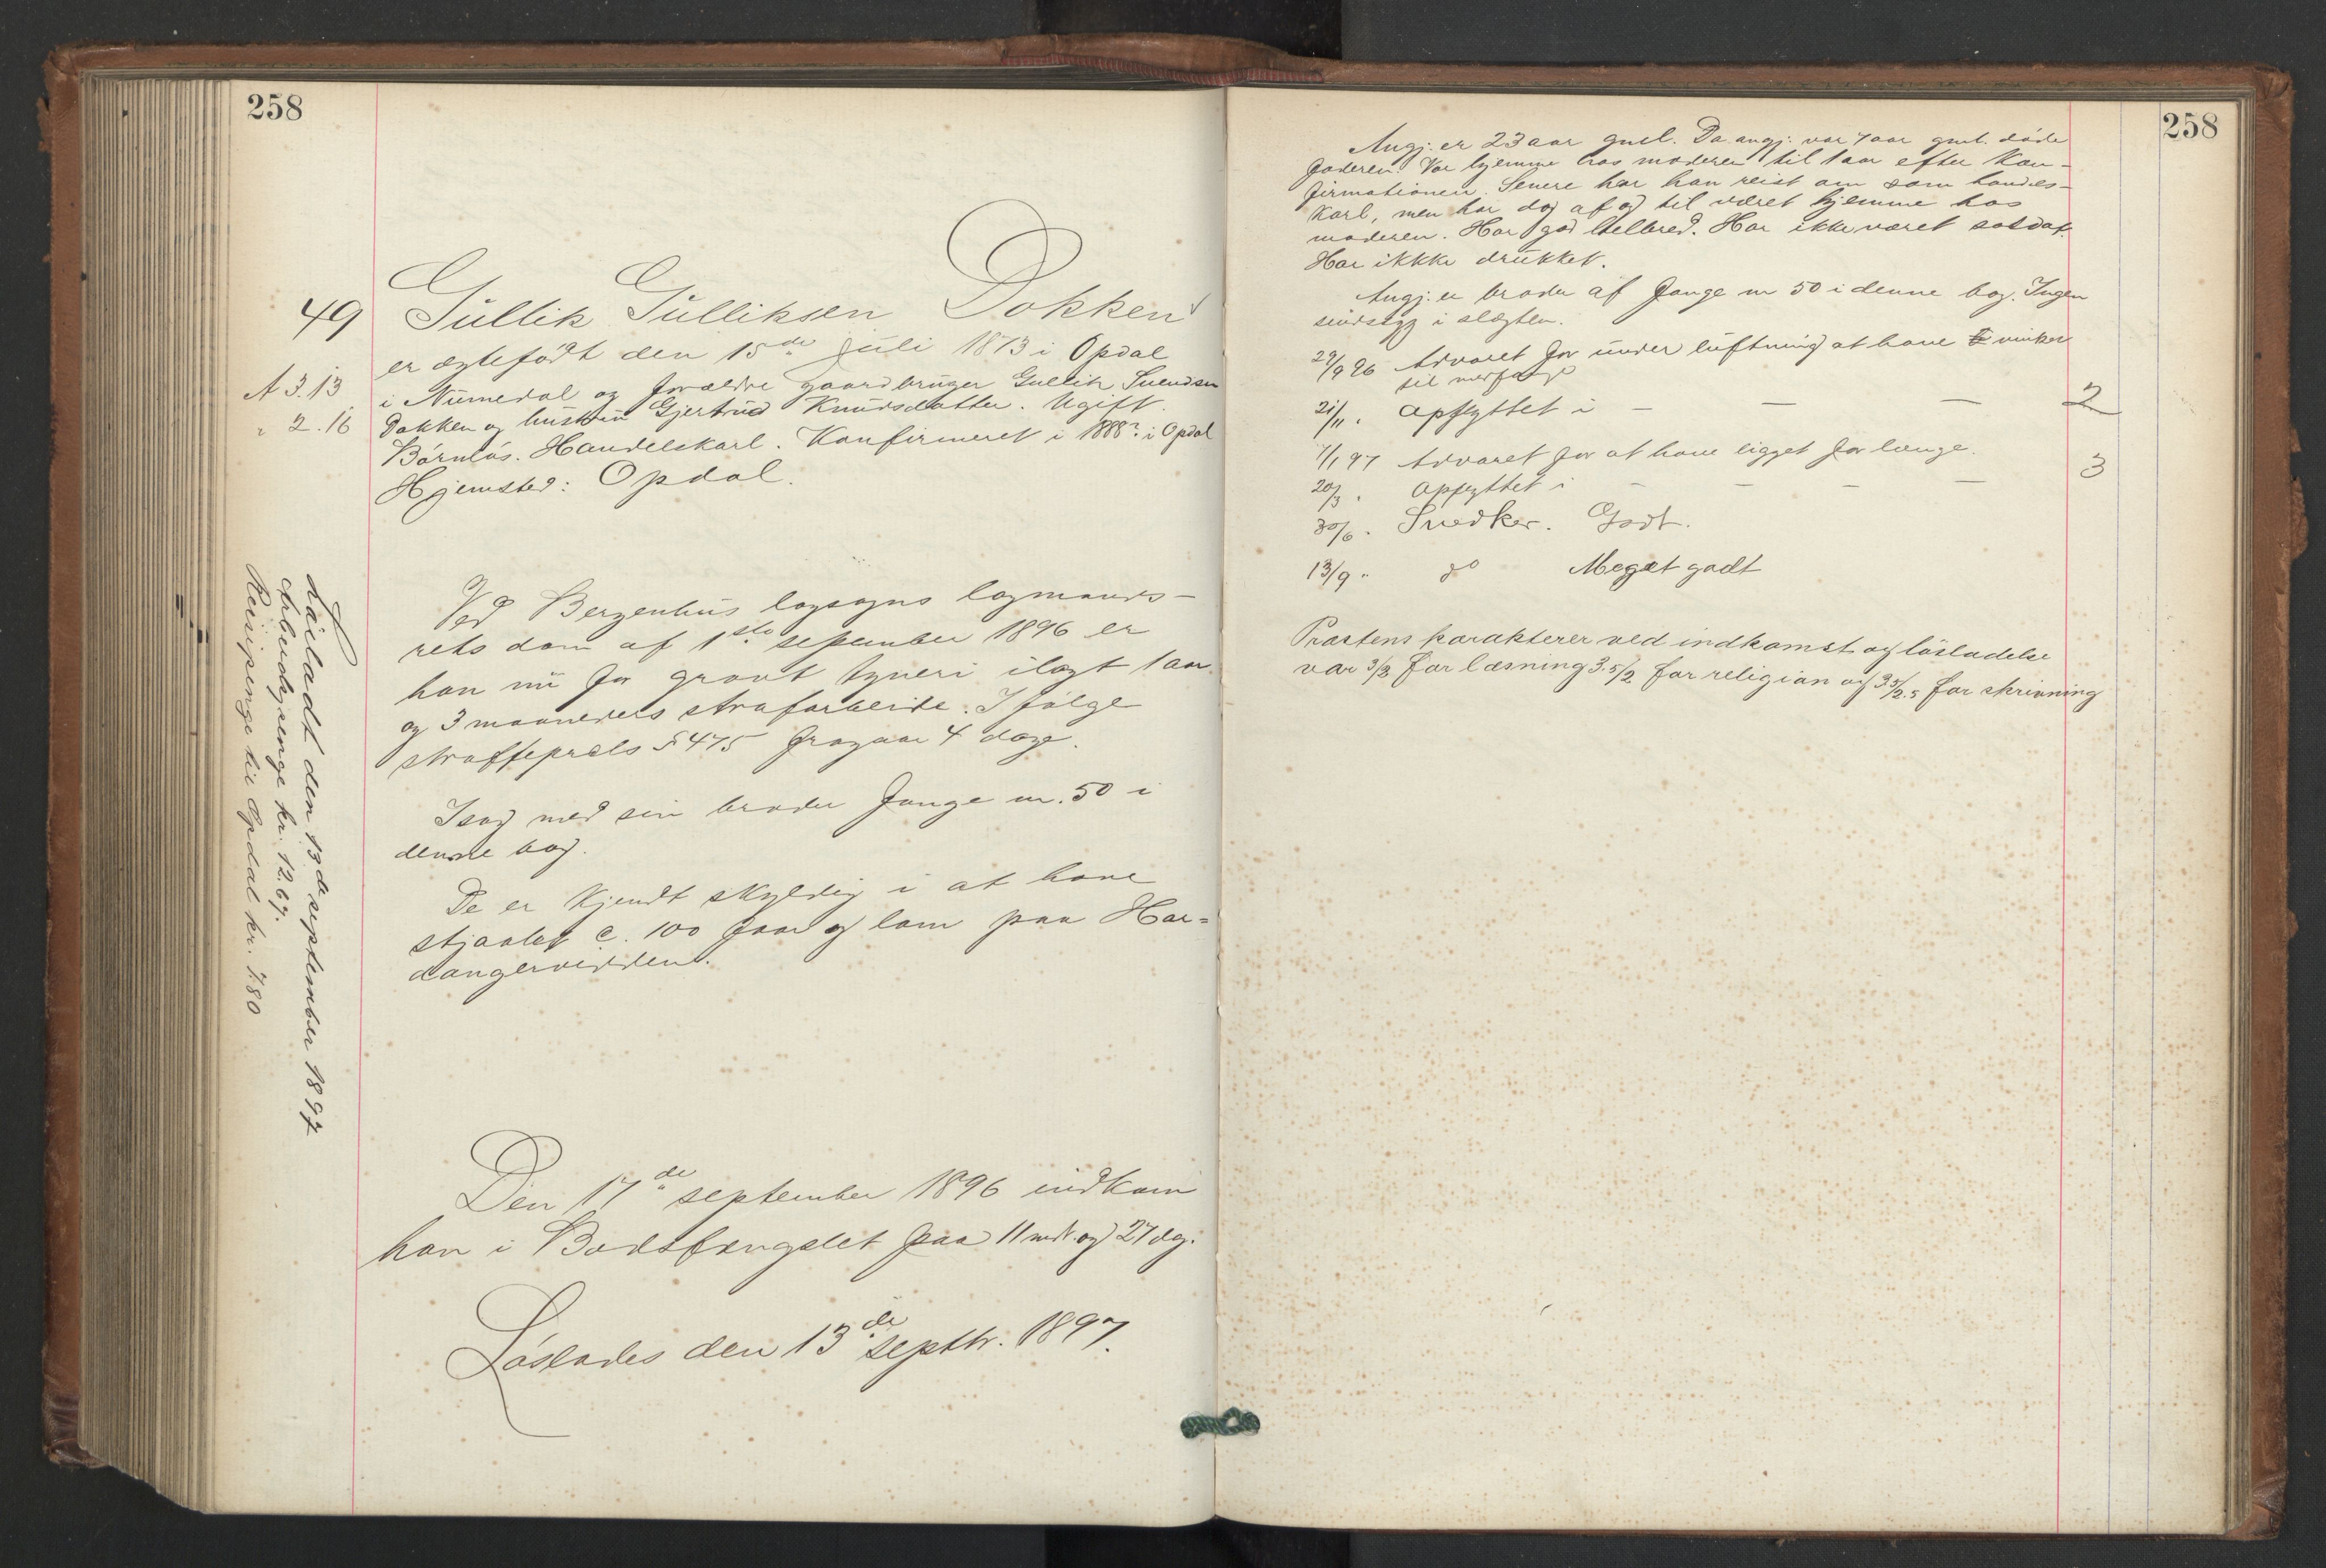 258
49
Gullik Gulliksen Dokken
er ægtefödt den 15de juli 1873 i Opdal
A 3.13
i Numedal og forældre gaardbruger Gullik Svendsen
" 2.16
Dokken og hustru Gjertrud Knudsdatter. Ugift.
Börnlös. Handelskarl. Konfirmeret i 1888? i Opdal
Hjemsted: Opdal.
Ved Bergenhus lagsogns lagmands-
rets dom af 1ste september 1896 er
han nu for grovt tyveri ilagt 1 aar
og 3 maaneders strafarbeide. I fölge
straffeprcls § 475 fragaar 4 dage.
I sag med sin broder fange nr. 50 i
denne bog.
De er kjendt skyldig i at have
stjaalet c. 100 faar og lam paa Har=
dangervidden.
Den 17de september 1896 indkom
han i Bodsfængslet paa 11 mdr. og 27 dg.
Löslades den 13de septbr. 1897.
Lösladt den 13de september 1897
Arbeidspenge kr. 12.67.
Reisepenge til Opdal kr. 7.80
258
Angj. er 23 aar gml. Da angj. var 7 aar gml. döde
faderen. Var hjemme hos moderen til 1 aar efter kon-
firmationen. Senere har han reist om som handels-
karl, men har dog af og til været hjemme hos
moderen. Har god helbred. Har ikke været soldat.
Har ikkke drukket.
Angj. er broder af fange nr 50 i denne bog. Ingen
sindssyg i slægten.
29/9 96 Advaret for under luftning at have vinket
til medfange
21/11 " Opflyttet i — — — 2
7/1 97 Advaret for at have ligget for længe.
20/3 " Opflyttet i — — — — 3
30/6 " Snedker. Godt.
13/9 " do Meget godt
Præstens karakterer ved indkomst og lösladelse
var 3/3 for læsning 3.5/2 for religion og 3.5/2.5 for skrivning